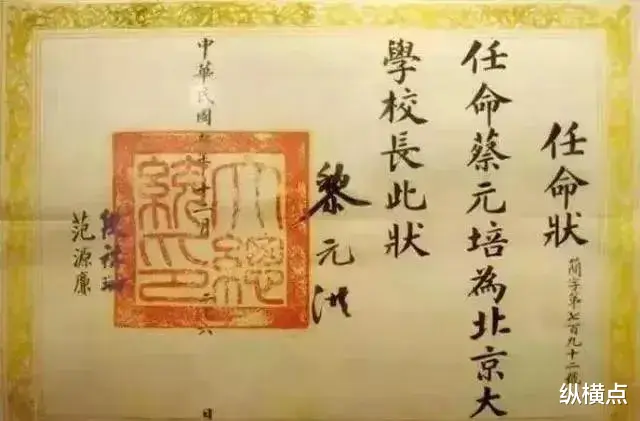 任命狀
簡字第七百九十二號
任命蔡元培為北京大
學校長此狀
黎元洪
大總統印
中華民國五年十二月二十六日
段祺瑞
范源廉
纵横点